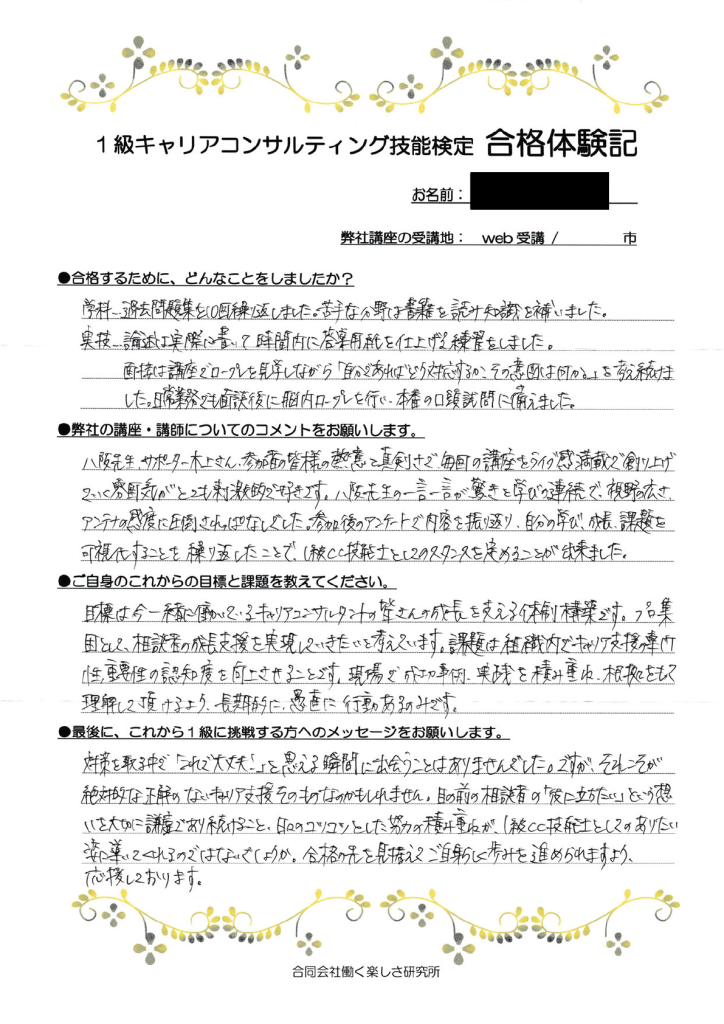 1級キャリアコンサルティング技能検定 合格体験記
お名前：
弊社講座の受講地： web受講 / 市
●合格するために、どんなことをしましたか？
学科…過去問題集を10回繰り返しました。苦手な分野は書籍を読み知識を補いました。
実技…論述は実際に書いて時間内に答案用紙を仕上げる練習をしました。
面接は講座でロープレを見学しながら「自分であればどう対応するか、その意図は何か。」を考え続けま
した。日常業務でも面談後に脳内ロープレを行い、本番の口頭試問に備えました。
●弊社の講座・講師についてのコメントをお願いします。
八阪先生、サポーター木上さん、参加者の皆様の熱意と真剣さで、毎回の講座をライブ感満載で創り上げ
ていく雰囲気がとても刺激的で好きです。八阪先生の一言一言が驚きと学びの連続で、視野の広さ、
アンテナの感度に圧倒されっぱなしでした。参加後のアンケートで内容を振り返り、自分の学び、成長、課題を
可視化することを繰り返したことで、1級CC技能士としてのスタンスを定めることが出来ました。
●ご自身のこれからの目標と課題を教えてください。
目標は今一緒に働いているキャリアコンサルタントの皆さんの成長を支える体制構築です。プロ集
団として、相談者の成長支援を実現していきたいと考えています。課題は組織内でキャリア支援の専門
性、重要性の認知度を向上させることです。現場で成功事例、実践を積み重ね、根拠をもって
理解して頂けるよう、長期的に、愚直に行動あるのみです。
●最後に、これから１級に挑戦する方へのメッセージをお願いします。
対策を取る中で「これで大丈夫！」と思える瞬間に出会うことはありませんでした。ですが、それこそが
絶対的な正解のないキャリア支援そのものなのかもしれません。目の前の相談者の「役に立ちたい」という想
いを大切に講座であり続けること、日々のコツコツとした努力の積み重ねが、1級CC技能士としてのありたい
姿に導いてくれるのではないでしょうか。合格の先を見据えてご自身らしく歩みを進められますよう、
応援しております。
合同会社働く楽しさ研究所